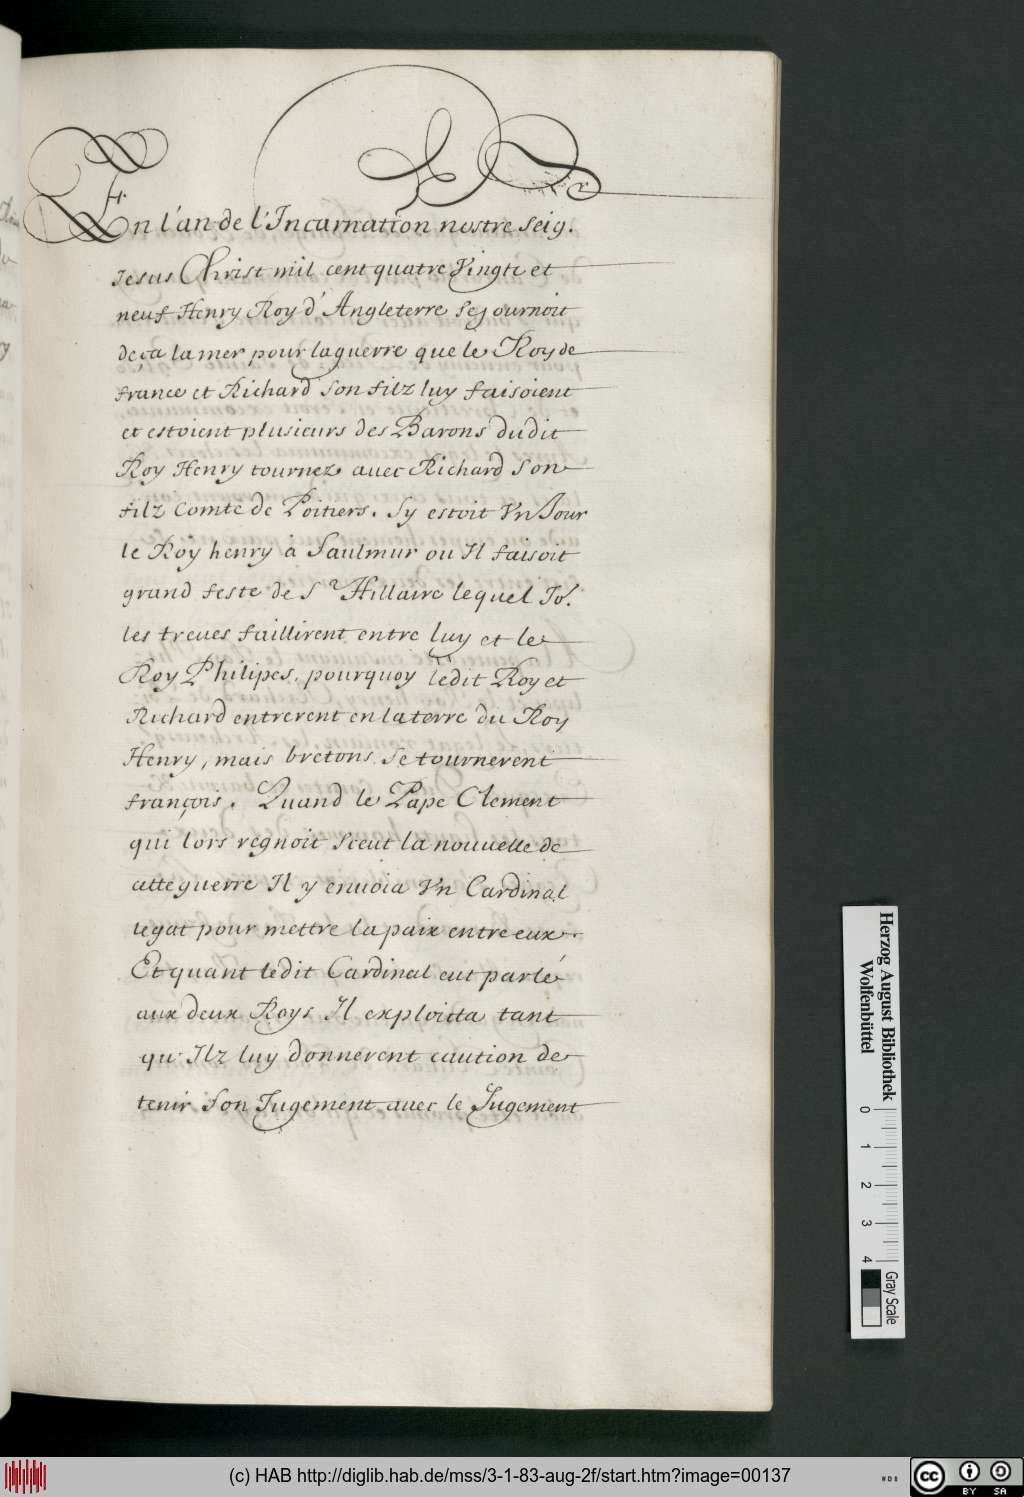 En l'an de l'Incarnation nostre Seig.r
Jesus Christ mil cent quatre Vingtz et
neuf Henry Roy d'Angleterre Sejournoit
deça la mer pour la guerre que le Roy de
france et Richard Son filz luy faisoient
et estoient plusieurs des Barons dudit
Roy Henry tournez avec Richard Son
filz Comte de Poitiers. Sy estoit Vn Jour
le Roy henry à Saulmur ou Il faisoit
grand feste de St Hillaire lequel Jo.r
les treues faillirent entre luy et le
Roy Philipes, pourquoy ledit Roy et
Richard entrerent en la terre du Roy
Henry, mais bretons Se tournerent
françois. Quand le Pape Clement
qui lors regnoit Sceut la nouuelle de
cette guerre Il y enuoia Vn Cardinal
legat pour mettre la paix entre eux.
Et quant ledit Cardinal eut parlé
aux deux Roys Il exploitta tant
qu'Ilz luy donnerent caution de
tenir Son Jugement avec le Jugement
Herzog August Bibliothek
Wolfenbüttel
0 1 2 3 4
Gray Scale
(c) HAB http://diglib.hab.de/mss/3-1-83-aug-2f/start.htm?image=00137
cc BY SA